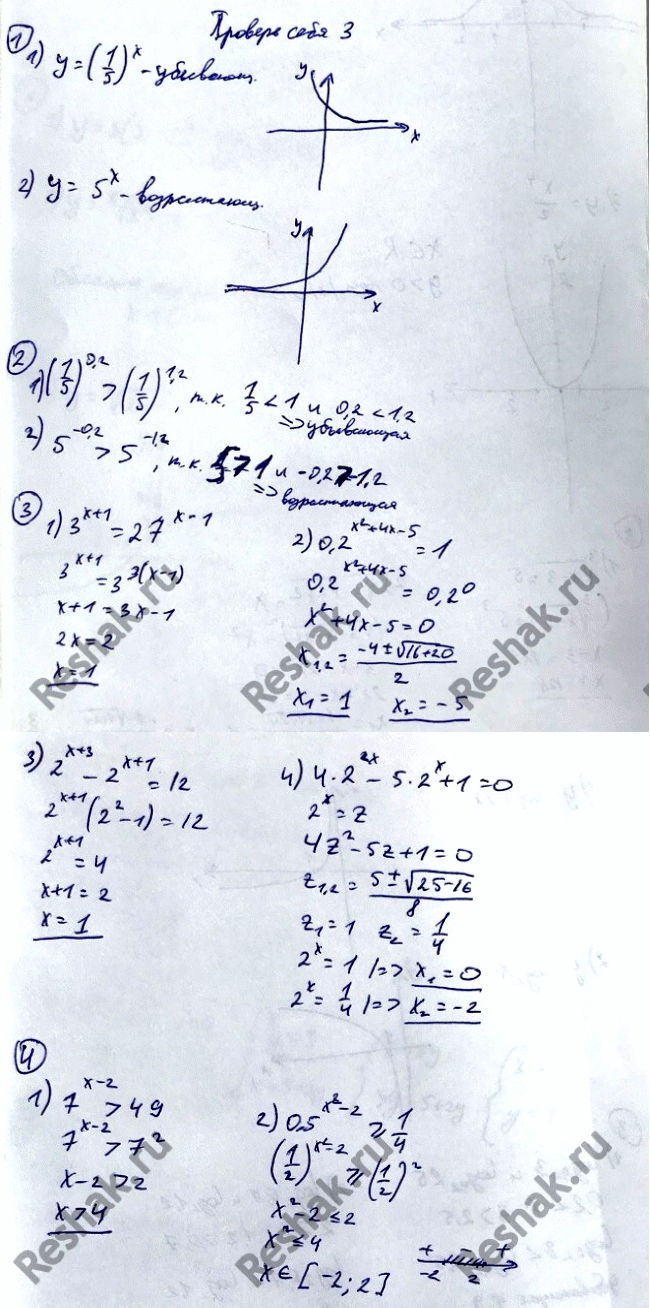 Проверь себя 3
① 1) y = (1/5)^x - убывающ.
y
x
2) y = 5^x - возрастающ.
y
x
②
1) (1/5)^0,2 > (1/5)^1,2, т.к. 1/5 < 1 и 0,2 < 1,2
=> убывающая
2) 5^-0,2 > 5^-1,2, т.к. 5 > 1 и -0,2 > -1,2
=> возрастающая
③
1) 3^(x+1) = 27^(x-1)
3^(x+1) = 3^3(x-1)
x+1 = 3x-1
2x = 2
x = 1
2) 0,2^(x²+4x-5) = 1
0,2^(x²+4x-5) = 0,2^0
x²+4x-5 = 0
x1,2 = (-4 ± √(16+20))/2
x1 = 1 x2 = -5
3) 2^(x+3) - 2^(x+1) = 12
2^(x+1) (2² - 1) = 12
2^(x+1) = 4
x+1 = 2
x = 1
4) 4·2^2x - 5·2^x + 1 = 0
2^x = z
4z² - 5z + 1 = 0
z1,2 = (5 ± √(25-16))/8
z1 = 1 z2 = 1/4
2^x = 1 |=> x1 = 0
2^x = 1/4 |=> x2 = -2
④
1) 7^(x-2) > 49
7^(x-2) > 7²
x-2 > 2
x > 4
2) 0,5^(x²-2) ≥ 1/4
(1/2)^(x²-2) ≥ (1/2)²
x² - 2 ≤ 2
x² ≤ 4
x ∈ [-2; 2]
+ - +
-2 2
Reshak.ru
Reshak.ru
Reshak.ru
Reshak.ru
Reshak.ru
Reshak.ru